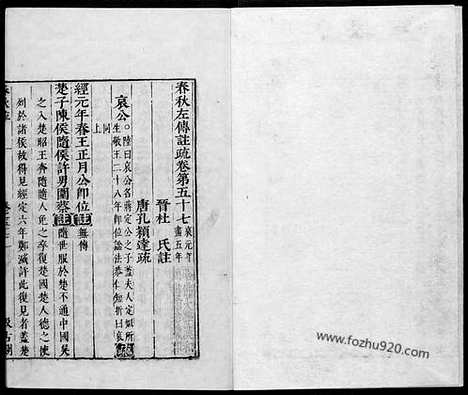 春秋左傳註疏卷第五十七 哀元年
盡五年
晉杜 氏註
唐孔穎達疏
哀公 ○陸曰哀公名蔣定公之子蓋夫人定姒所
生敬王二十八年即位諡法恭仁短折曰哀
經元年春王正月公即位 註 無傳
楚子陳侯隨侯許男圍蔡 註 隨世服於楚不通中國吳
之入楚昭王奔隨隨人免之卒復楚國楚人德之使
列於諸侯故得見經定六年鄭滅許此復見者蓋楚
汲古閣
www.fozhu920.com